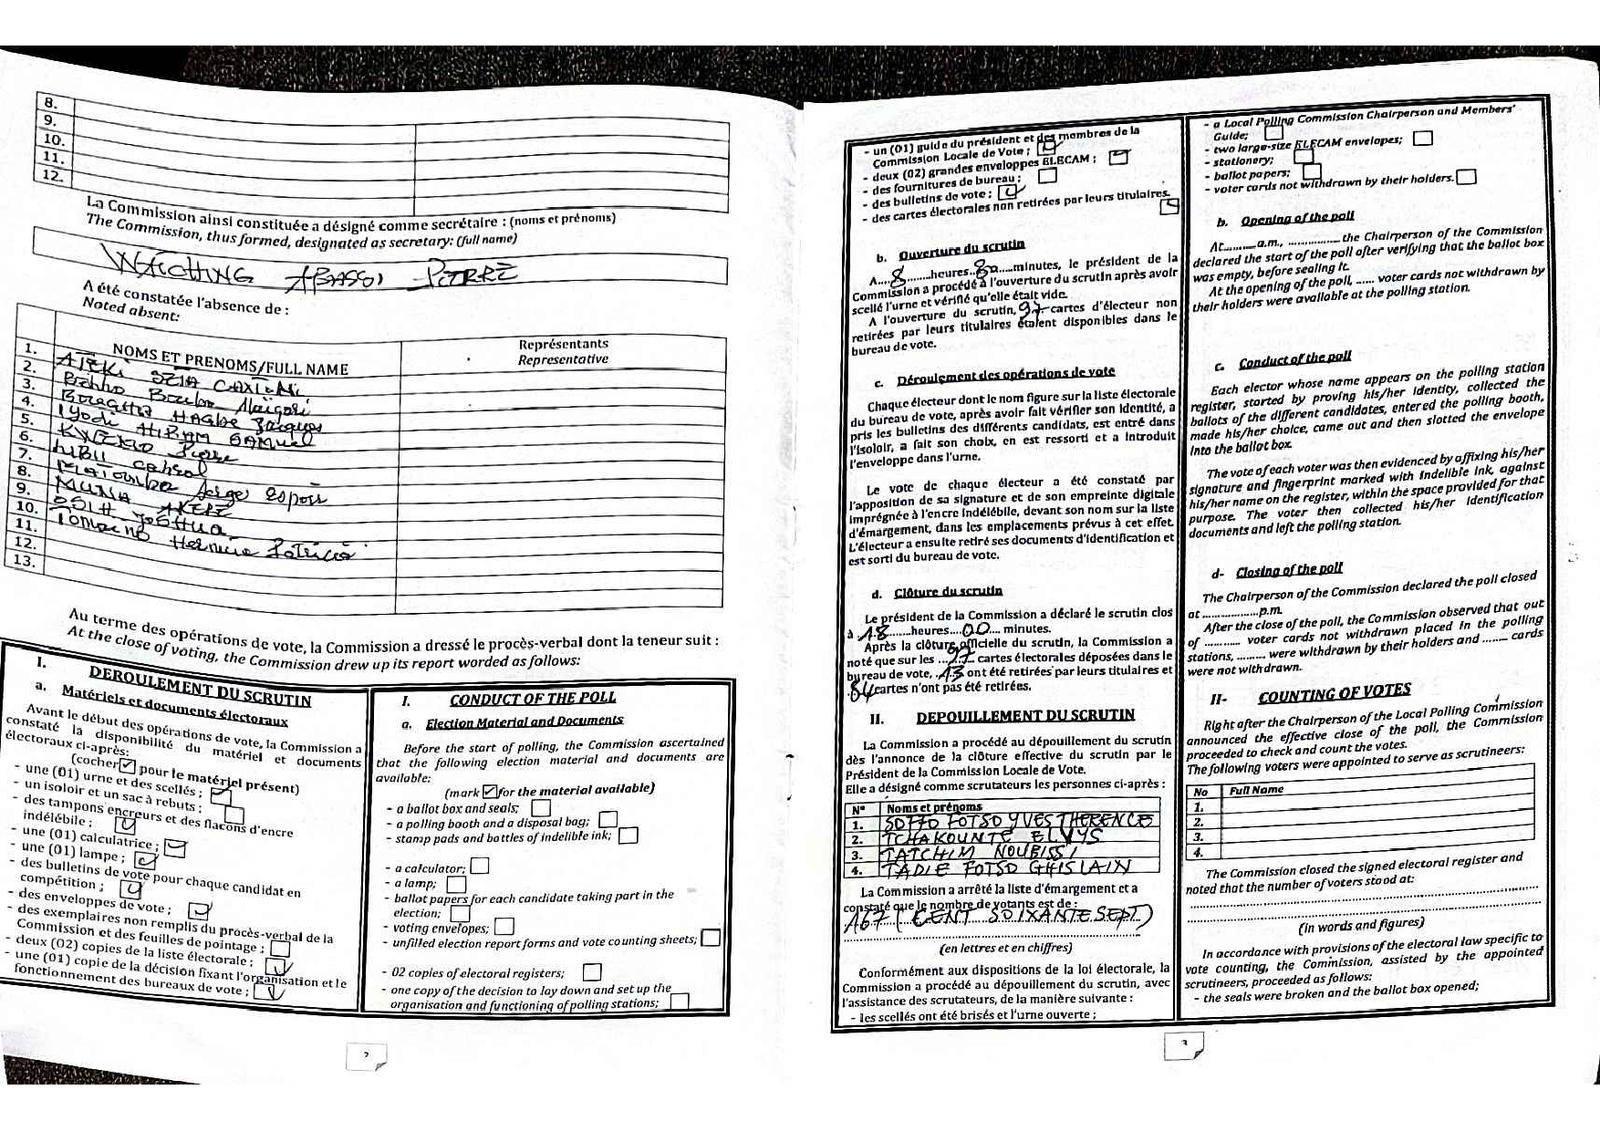 8.
9.
10.
11.
12.
La Commission ainsi constituée a désigné comme secrétaire : (noms et prénoms)
The Commission, thus formed, designated as secretary: (full name)
ABASSI PIERRE
A été constatée l'absence de :
Noted absent:
NOMS ET PRENOMS/FULL NAME
Représentants
Representative
1. ATEKI SETA CAXTON
2. Bello Bouba Maïgari
3. HAGBE Jacques
4. Iyodi HIRAM SAMUEL
5. KWEMO Pierre
6. LIBII Cabral
7. MATOMBA Serge Espoir
8. MUNA AKERE
9. OSIH JOSHUA
10. TOMAINO Hermine Patricia
11.
12.
13.
Au terme des opérations de vote, la Commission a dressé le procès-verbal dont la teneur suit :
At the close of voting, the Commission drew up its report worded as follows:
I. DEROULEMENT DU SCRUTIN
a. Matériels et documents électoraux
Avant le début des opérations de vote, la Commission a
constaté la disponibilité du matériel et documents
électoraux ci-après:
(cocher pour le matériel présent)
- une (01) urne et des scellés ;
- un isoloir et un sac à rebuts ;
- des tampons encreurs et des flacons d'encre
indélébile ;
- une (01) calculatrice ;
- une (01) lampe ;
- des bulletins de vote pour chaque candidat en
compétition ;
- des enveloppes de vote ;
- des exemplaires non remplis du procès-verbal de la
Commission et des feuilles de pointage ;
- deux (02) copies de la liste électorale ;
- une (01) copie de la décision fixant l'organisation et le
fonctionnement des bureaux de vote ;
I. CONDUCT OF THE POLL
a. Election Material and Documents
Before the start of polling, the Commission ascertained
that the following election material and documents are
available:
(mark for the material available)
- a ballot box and seals;
- a polling booth and a disposal bag;
- stamp pads and bottles of indelible ink;
- a calculator;
- a lamp;
- ballot papers for each candidate taking part in the
election;
- voting envelopes;
- unfilled election report forms and vote counting sheets;
- 02 copies of electoral registers;
- one copy of the decision to lay down and set up the
organisation and functioning of polling stations;
2
- un (01) guide du président et des membres de la
Commission Locale de Vote ;
- deux (02) grandes enveloppes ELECAM ;
- des fournitures de bureau ;
- des bulletins de vote ;
- des cartes électorales non retirées par leurs titulaires.
b. Ouverture du scrutin
A....8......heures........minutes, le président de la
Commission a procédé à l'ouverture du scrutin après avoir
scellé l'urne et vérifié qu'elle était vide.
A l'ouverture du scrutin, 97 cartes d'électeur non
retirées par leurs titulaires étaient disponibles dans le
bureau de vote.
c. Déroulement des opérations de vote
Chaque électeur dont le nom figure sur la liste électorale
du bureau de vote, après avoir fait vérifier son identité, a
pris les bulletins des différents candidats, est entré dans
l'isoloir, a fait son choix, en est ressorti et a introduit
l'enveloppe dans l'urne.
Le vote de chaque électeur a été constaté par
l'apposition de sa signature et de son empreinte digitale
imprégnée à l'encre indélébile, devant son nom sur la liste
d'émargement, dans les emplacements prévus à cet effet.
L'électeur a ensuite retiré ses documents d'identification et
est sorti du bureau de vote.
d. Clôture du scrutin
Le président de la Commission a déclaré le scrutin clos
à 18.......heures....00.... minutes.
Après la clôture officielle du scrutin, la Commission a
noté que sur les ...97... cartes électorales déposées dans le
bureau de vote, ..13 ont été retirées par leurs titulaires et
84 cartes n'ont pas été retirées.
II. DEPOUILLEMENT DU SCRUTIN
La Commission a procédé au dépouillement du scrutin
dès l'annonce de la clôture effective du scrutin par le
Président de la Commission Locale de Vote.
Elle a désigné comme scrutateurs les personnes ci-après :
N° Noms et prénoms
1. FOTSO YVES THERENCE
2. TCHAKOUNTE ELVYS
3. TATCHIM NOUBISSI
4. TADIE FOTSO GHISLAIN
La Commission a arrêté la liste d'émargement et a
constaté que le nombre de votants est de :
167 (CENT SOIXANTE SEPT)
(en lettres et en chiffres)
Conformément aux dispositions de la loi électorale, la
Commission a procédé au dépouillement du scrutin, avec
l'assistance des scrutateurs, de la manière suivante :
- les scellés ont été brisés et l'urne ouverte ;
- a Local Polling Commission Chairperson and Members'
Guide;
- two large-size ELECAM envelopes;
- stationery;
- ballot papers;
- voter cards not withdrawn by their holders.
b. Opening of the poll
At..........a.m., ................ the Chairperson of the Commission
declared the start of the poll after verifying that the ballot box
was empty, before sealing it.
At the opening of the poll, ...... voter cards not withdrawn by
their holders were available at the polling station.
c. Conduct of the poll
Each elector whose name appears on the polling station
register, started by proving his/her identity, collected the
ballots of the different candidates, entered the polling booth,
made his/her choice, came out and then slotted the envelope
into the ballot box.
The vote of each voter was then evidenced by affixing his/her
signature and fingerprint marked with indelible ink, against
his/her name on the register, within the space provided for that
purpose. The voter then collected his/her identification
documents and left the polling station.
d- Closing of the poll
The Chairperson of the Commission declared the poll closed
at .................p.m.
After the close of the poll, the Commission observed that out
of .......... voter cards not withdrawn placed in the polling
stations, ......... were withdrawn by their holders and ........ cards
were not withdrawn.
II- COUNTING OF VOTES
Right after the Chairperson of the Local Polling Commission
announced the effective close of the poll, the Commission
proceeded to check and count the votes.
The following voters were appointed to serve as scrutineers:
No Full Name
1.
2.
3.
4.
The Commission closed the signed electoral register and
noted that the number of voters stood at:
(in words and figures)
In accordance with provisions of the electoral law specific to
vote counting, the Commission, assisted by the appointed
scrutineers, proceeded as follows:
- the seals were broken and the ballot box opened;
3